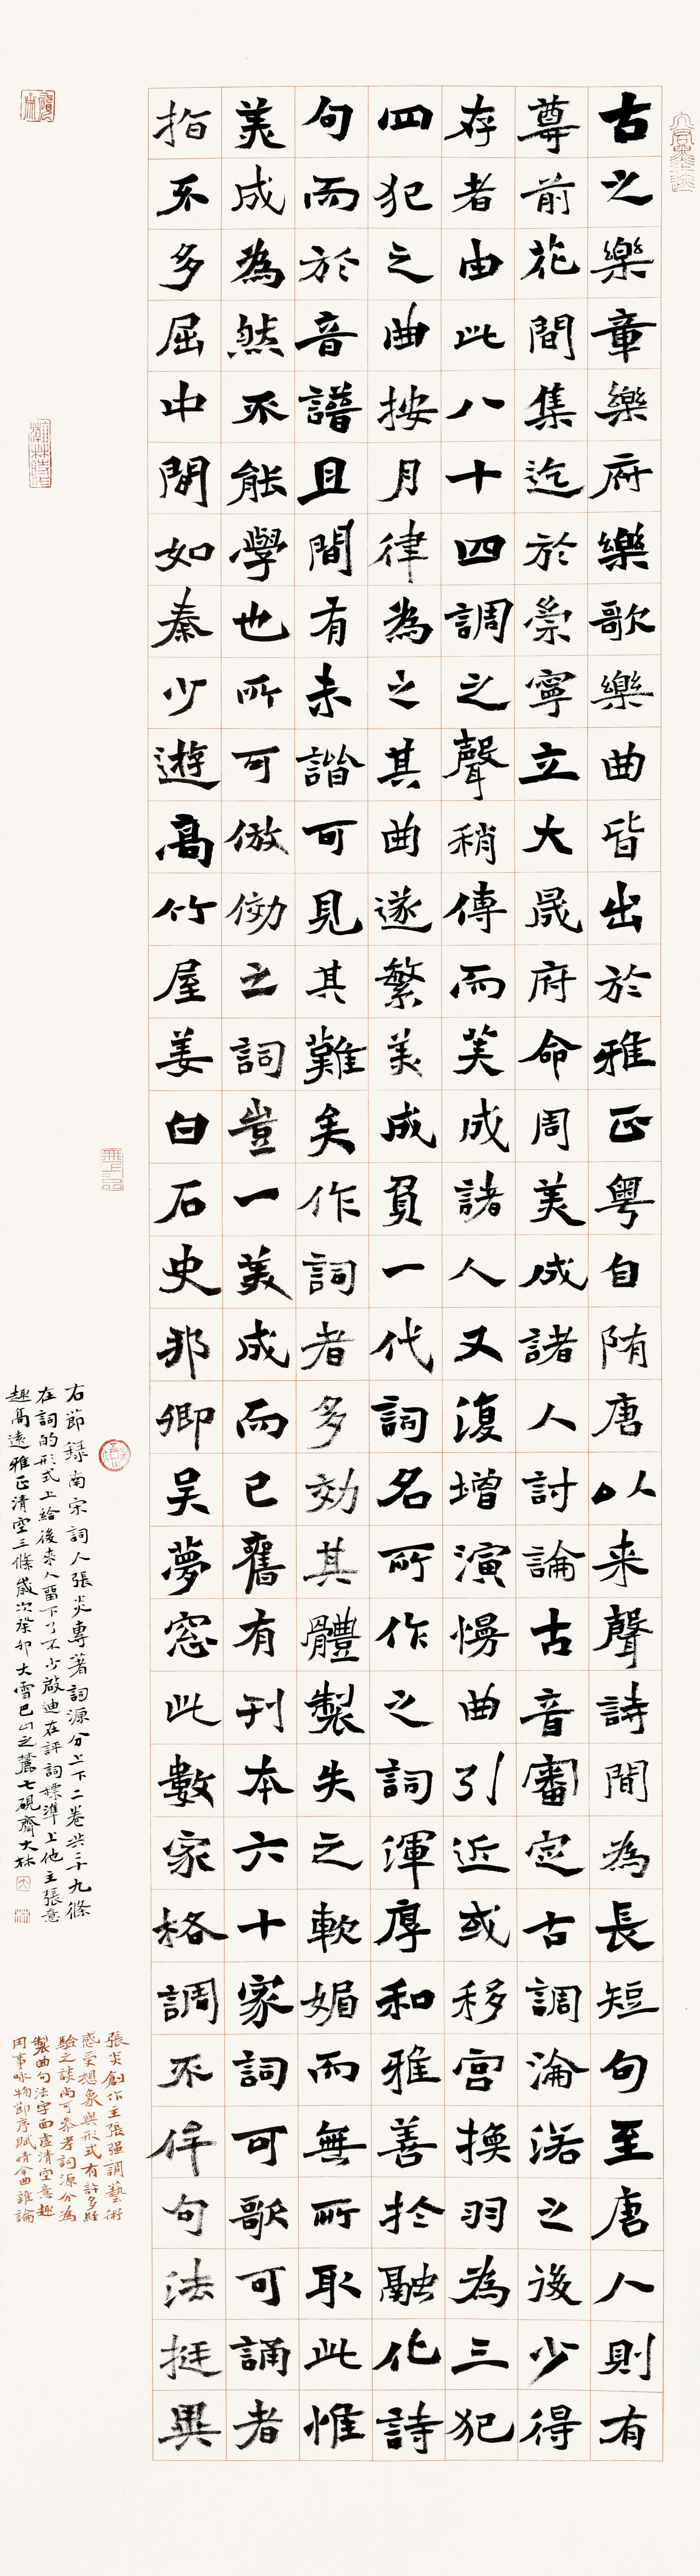 古之樂章樂府樂歌樂曲皆出於雅正粵自隋唐以来聲詩間為長短句至唐人則有
尊前花間集迄於崇寧立大晟府命周美成諸人討論古音審定古調淪落之後少得
存者由此八十四調之聲稍傳而美成諸人又復增演慢曲引近或移宮換羽為三犯
四犯之曲按月律為之其曲遂繁美成負一代詞名所作之詞渾厚和雅善於融化詩
句而於音譜且間有未諧可見其難矣作詞者多効其體製失之軟媚而無所取此惟
美成為然不能學也所可倣効之詞豈一美成而已舊有刊本六十家詞可歌可誦者
指不多屈中間如秦少遊高竹屋姜白石史邦卿吴夢窓此數家格調不侔句法挺異
右節録南宋詞人張炎專著詞源分上下二卷洪三十九條
在詞的形式上給後来人留下了不少啟迪在評詞標準上他主張意
趣高遠雅正清空三條歲次癸卯大雪巴山之麓七硯齋大林
張炎創作主張强調藝術
感受想象與形式有許多經
驗之談尚可参考詞源分為
製曲句法字面虛清空意趣
用事咏物節序賦情令曲雜論